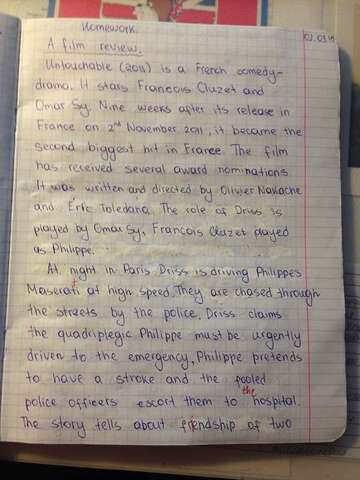 Homework.
02.03.15
A film review.
Untouchable (2011) is a French comedy-
drama. It stars Francois Cluzet and
Omar Sy. Nine weeks after its release in
France on 2nd November 2011, it became the
second biggest hit in France. The film
has received several award nominations.
It was written and directed by Olivier Nakache
and Éric Toledano. The role of Driss is
played by Omar Sy, Francois Cluzet played
as Philippe.
At night in Paris Driss is driving Philippe's
Maserati at high speed. They are chased through
the streets by the police. Driss claims
the quadriplegic Philippe must be urgently
driven to the emergency, Philippe pretends
to have a stroke and the fooled
police officers escort them to the hospital.
The story tells about friendship of two